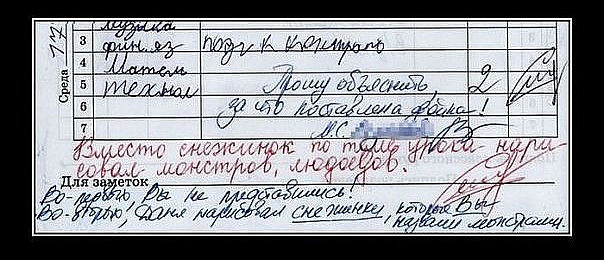 Среда 17
музыка
3 фин. яз подг к
4 Матем
5 технол Прошу объяснить, 2
6 за что поставлена двойка!
7 М.С.
Вместо снежинок по теме урока нари
совал монстров, людоедов.
Для заметок
Во-первых, Вы не представились!
Во-вторых, Даня нарисовал снежинки, которые Вы
назвали монстрами.